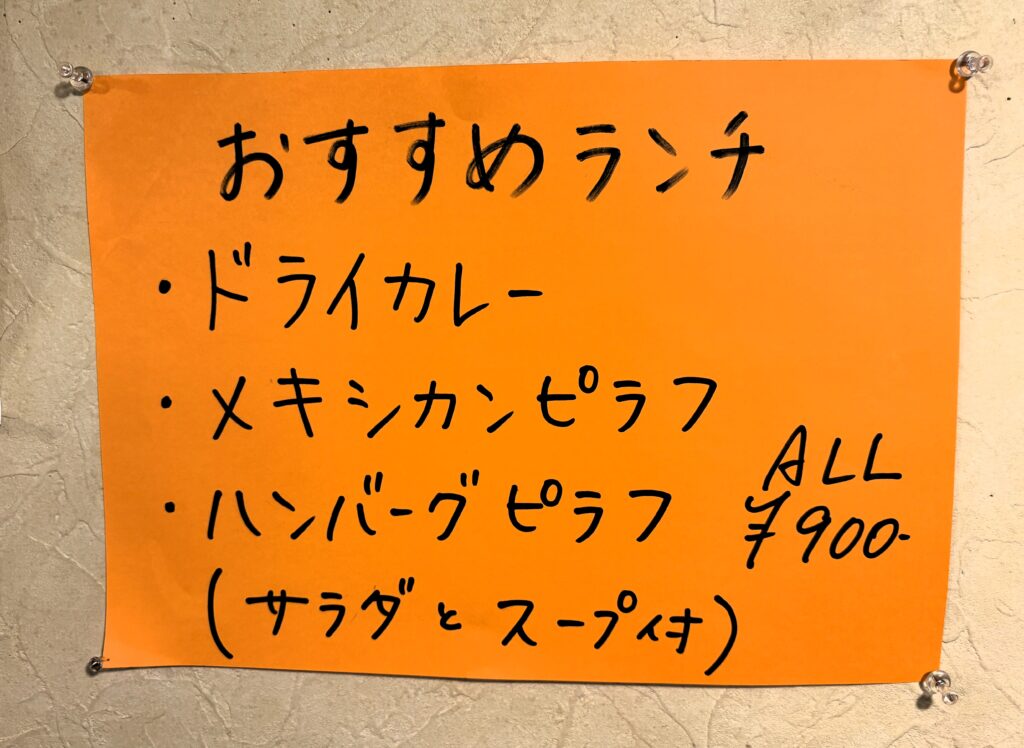 おすすめランチ
・ドライカレー
・メキシカンピラフ
・ハンバーグピラフ
ALL
¥900-
(サラダとスープ付)